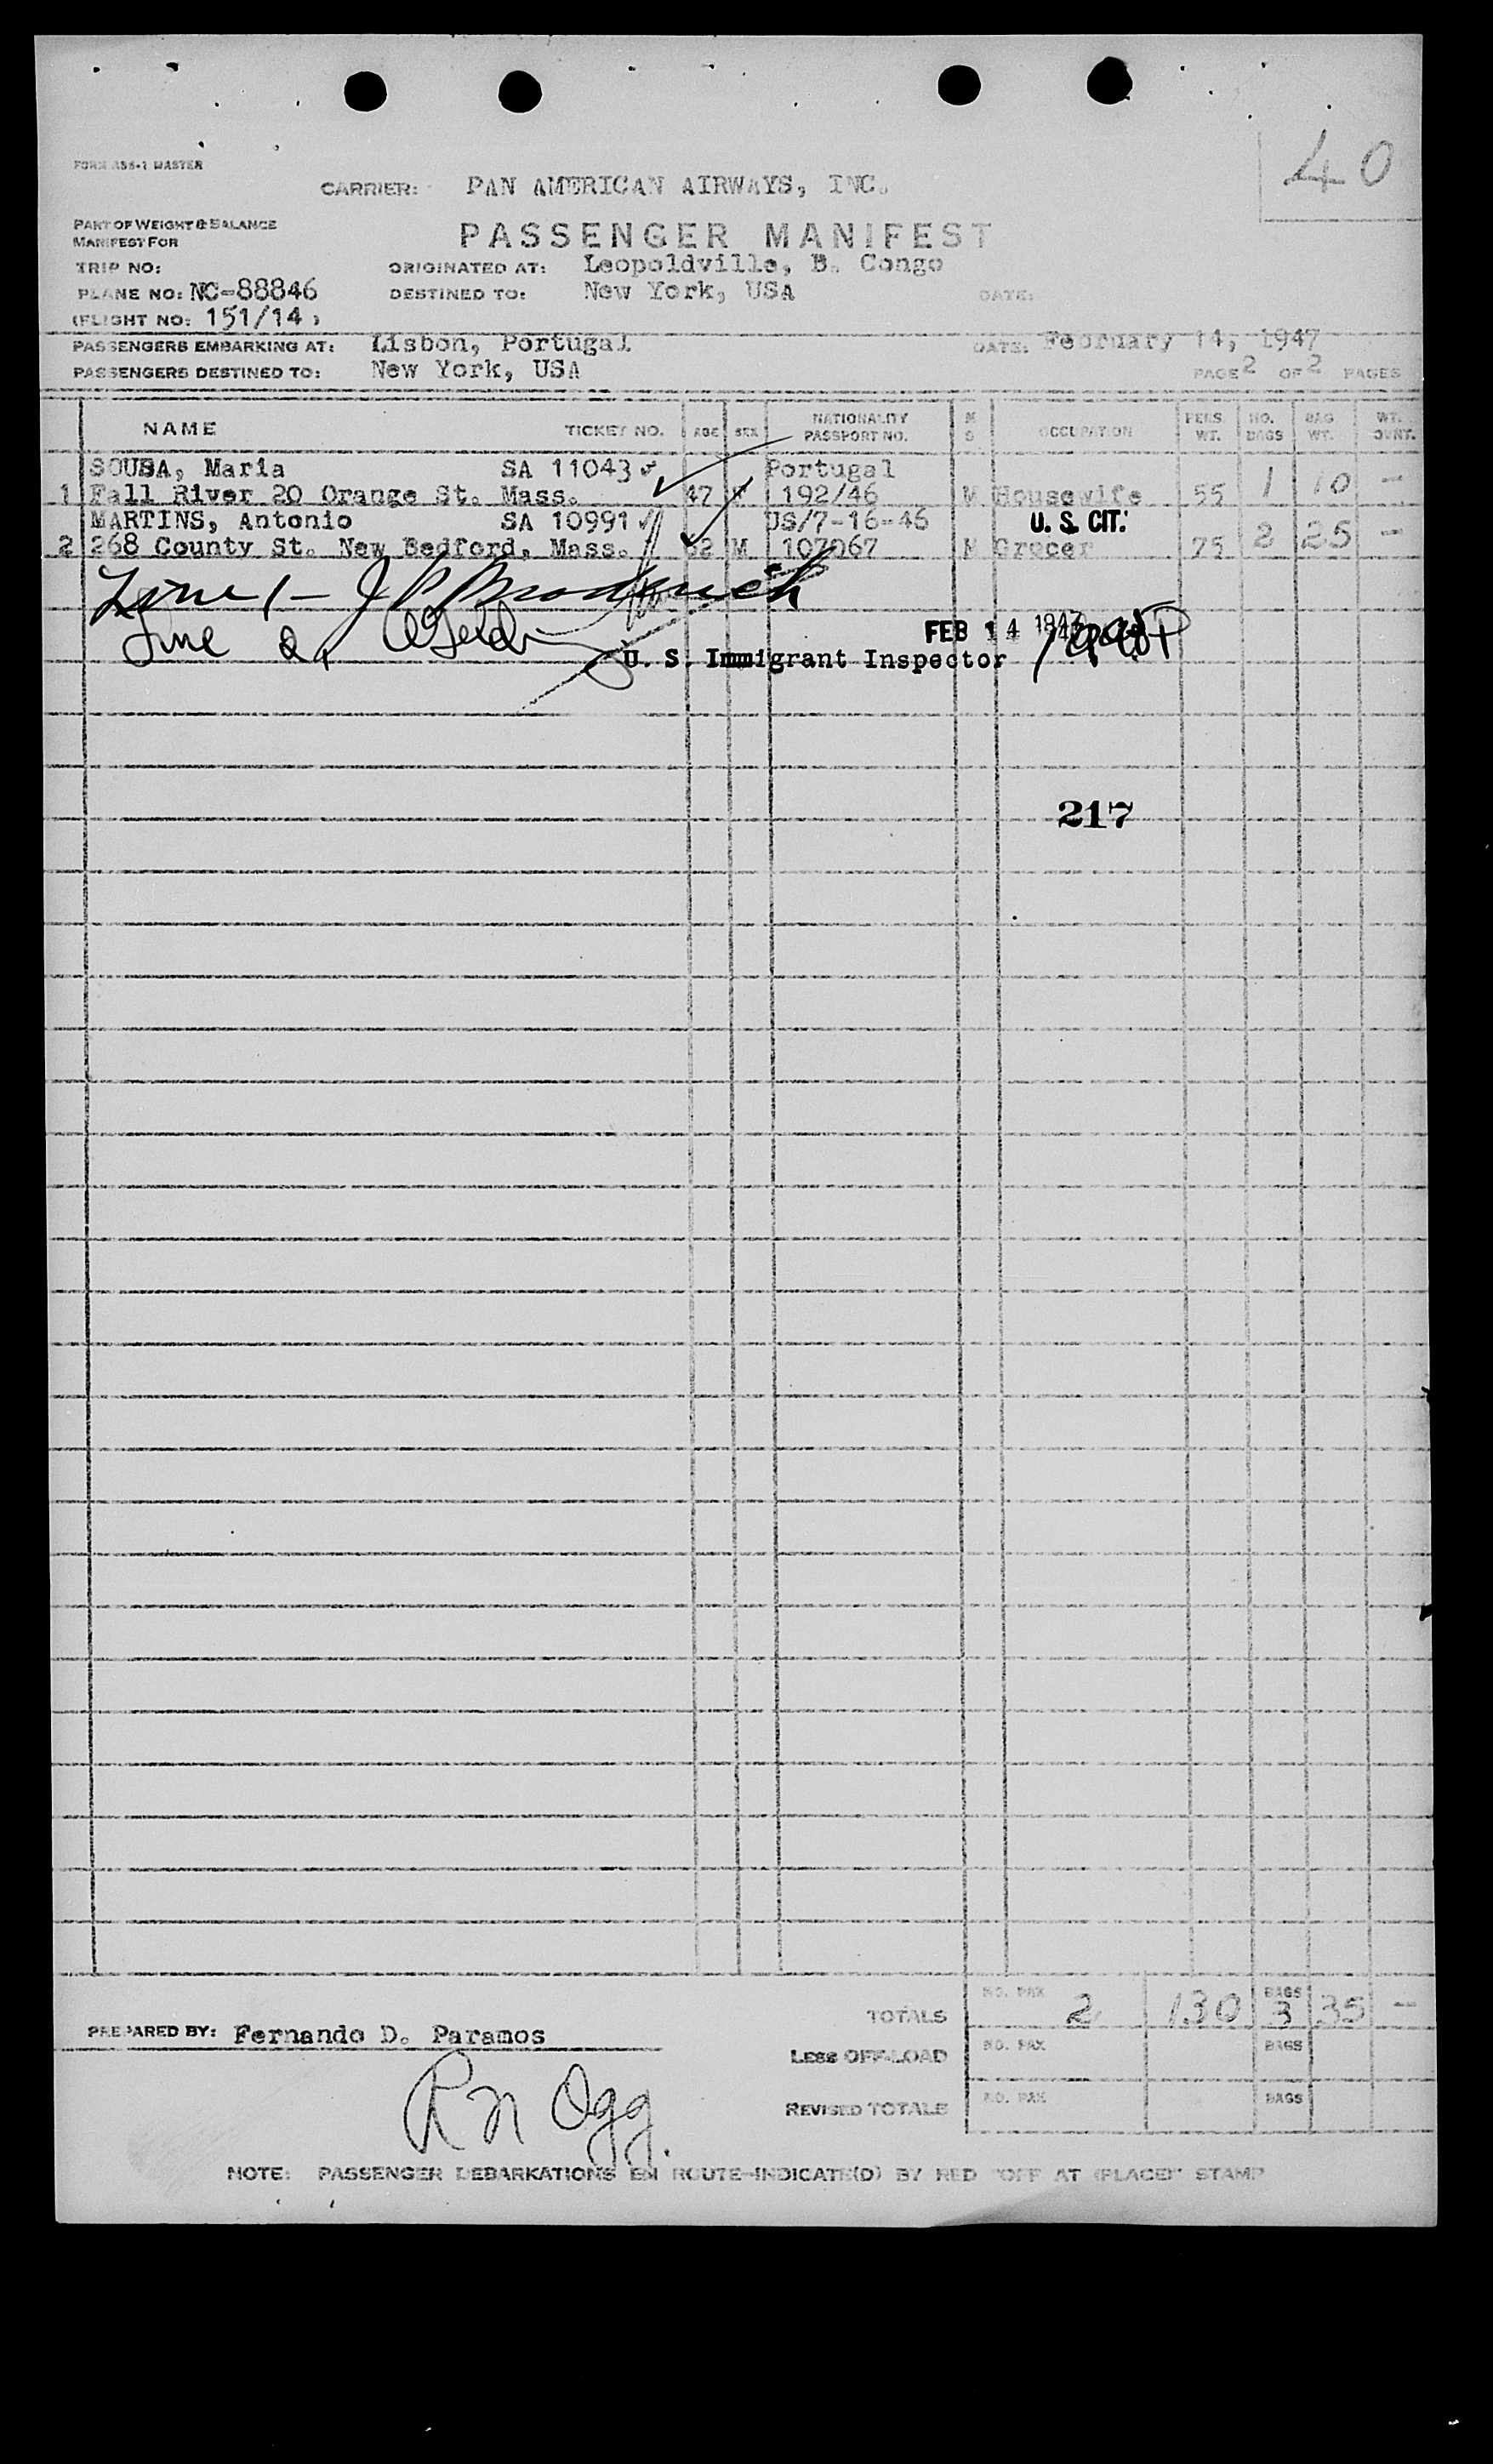 40
FORM ASS-1 MASTER
CARRIER: PAN AMERICAN AIRWAYS, INC.
PART OF WEIGHT & BALANCE
MANIFEST FOR
PASSENGER MANIFEST
TRIP NO: ORIGINATED AT: Leopoldville, B. Congo
PLANE NO: NC-88846 DESTINED TO: New York, USA DATE:
(FLIGHT NO: 151/14)
PASSENGERS EMBARKING AT: Lisbon, Portugal DATE: February 14, 1947
PASSENGERS DESTINED TO: New York, USA PAGE 2 OF 2 PAGES
NAME TICKET NO. AGE SEX NATIONALITY PASSPORT NO. M S OCCUPATION PERS. WT. NO. BAGS BAG WT. WT. OVNT.
SOUSA, Maria SA 11043 Portugal
1 Fall River 20 Orange St. Mass. 47 F 192/46 Housewife 55 1 10 -
MARTINS, Antonio SA 10991 US/7-16-46 U. S. CIT.
2 268 County St. New Bedford, Mass. 62 M 107067 M Grocer 75 2 25 -
Line 1 - J P Broderick
Line 2,
FEB 14 1947
U. S. Immigrant Inspector
217
TOTALS NO. PAX 2 130 BAGS 3 35 -
PREPARED BY: Fernando D. Paramos
LESS OFF-LOAD NO. PAX BAGS
R N Ogg.
REVISED TOTALS NO. PAX BAGS
NOTE: PASSENGER DEBARKATIONS EN ROUTE-INDICATE(D) BY RED "OFF AT (PLACE)" STAMP